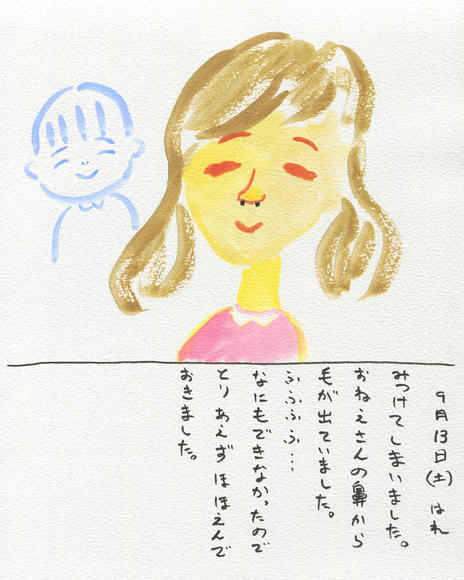 9月13日(土) はれ
みつけてしまいました。
おねえさんの鼻から
毛が出ていました。
ふふふふ…
なにもできなかったので
とりあえずほほえんで
おきました。